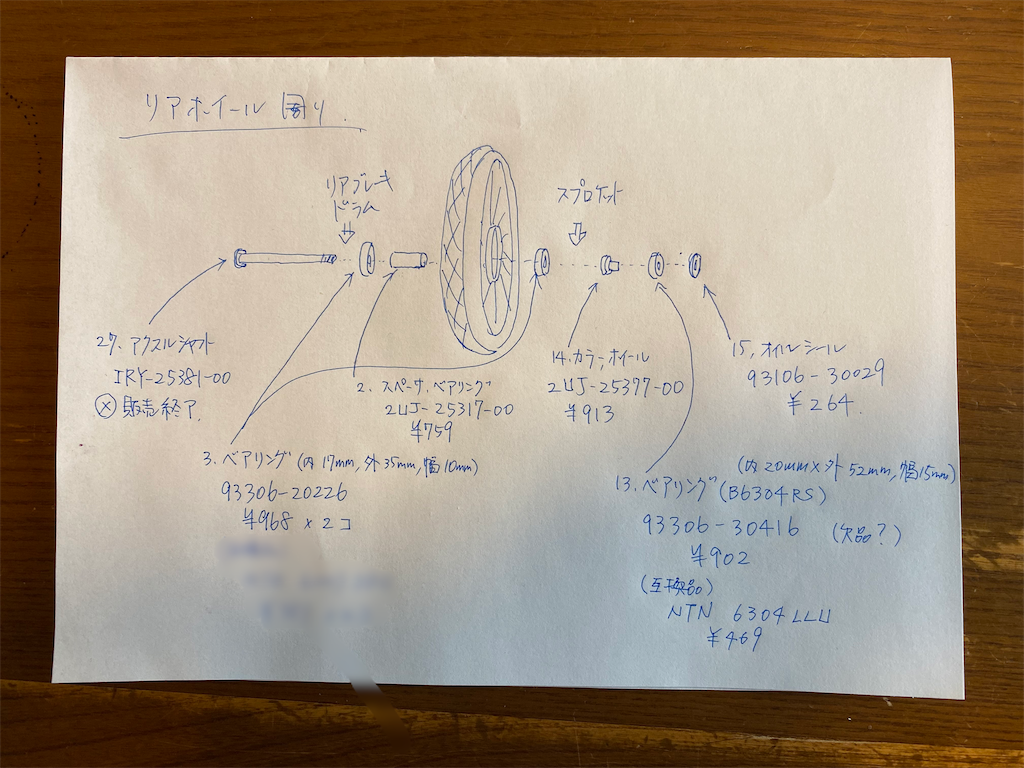 リアホイール 周り
リアブレーキ
ドラム
スプロケット
27. アクスルシャフト
1RY-25381-00
Ⓧ 販売終了.
2. スペーサ. ベアリング
2UJ-25317-00
¥759
14. カラ, ホイール
2UJ-25397-00
¥913
15, オイルシール
93106-30029
¥264.
3. ベアリング (内17mm, 外35mm, 幅10mm)
93306-20226
¥968 x 2コ
(内20mm×外52mm, 幅15mm)
13. ベアリング (B6304RS)
93306-30416 (欠品?)
¥902
(互換品)
NTN 6304LLU
¥469